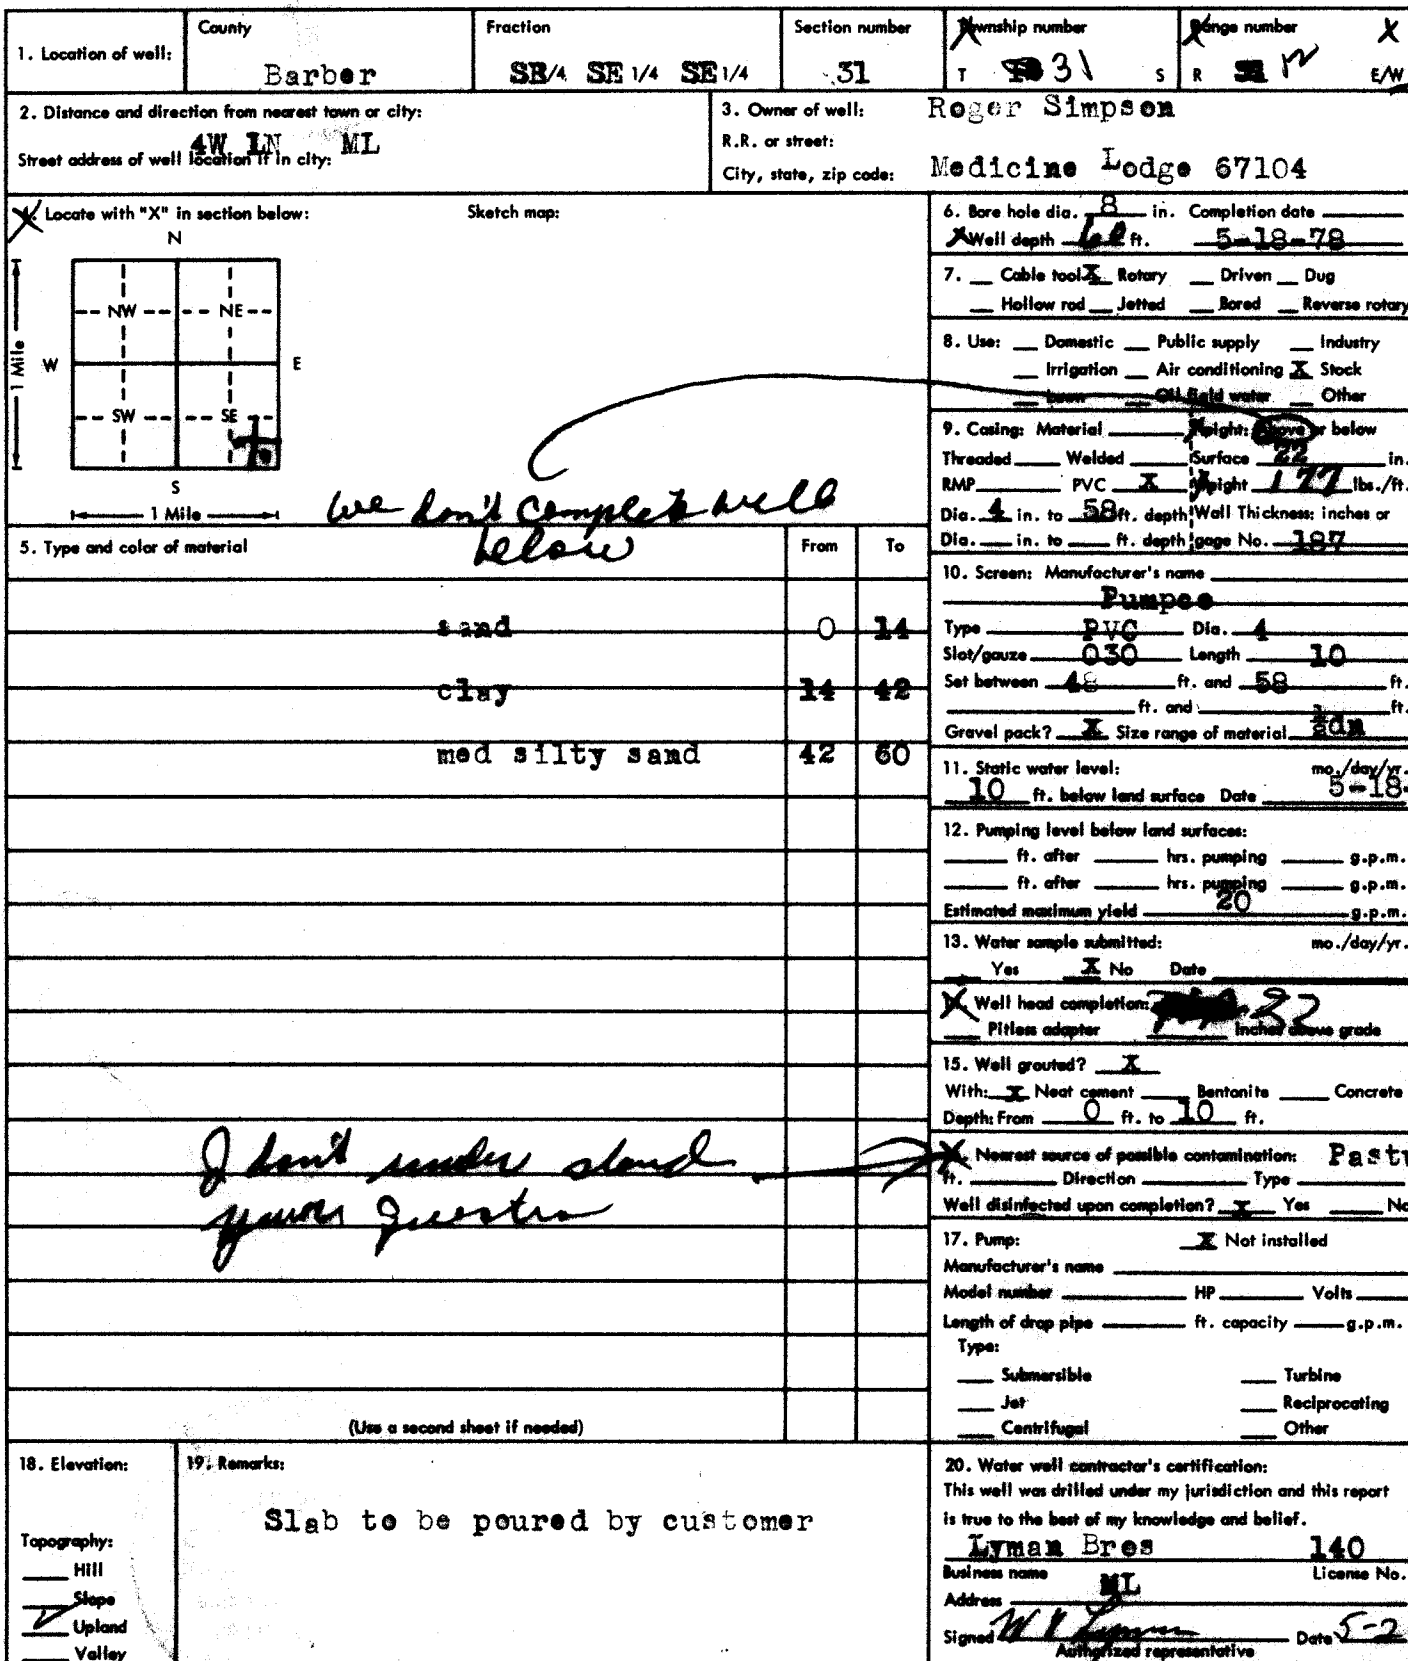 County Fraction Section number Township number Range number X
1. Location of well: Barber SE/4 SE 1/4 SE 1/4 31 T 31 S R 12 E/W
2. Distance and direction from nearest town or city:
4W 1N ML
Street address of well location if in city:
3. Owner of well: Roger Simpson
R.R. or street:
City, state, zip code: Medicine Lodge 67104
Locate with "X" in section below: Sketch map:
N
NW NE
1 Mile W E
SW SE
S
1 Mile
We don't complete well
below
5. Type and color of material From To
sand 0 14
clay 14 42
med silty sand 42 60
I don't under stand
your Question
(Use a second sheet if needed)
6. Bore hole dia. 8 in. Completion date
Well depth 60 ft. 5-18-78
7. Cable tool X Rotary Driven Dug
Hollow rod Jetted Bored Reverse rotary
8. Use: Domestic Public supply Industry
Irrigation Air conditioning X Stock
Lawn Oil field water Other
9. Casing: Material Height: Above or below
Threaded Welded Surface 22 in.
RMP PVC X Weight 177 lbs./ft.
Dia. 4 in. to 58 ft. depth Wall Thickness: inches or
Dia. in. to ft. depth gage No. 187
10. Screen: Manufacturer's name
Pumpco
Type PVC Dia. 4
Slot/gauze 030 Length 10
Set between 48 ft. and 58 ft.
ft. and ft.
Gravel pack? X Size range of material ½dn
11. Static water level: mo./day/yr.
10 ft. below land surface Date 5-18-
12. Pumping level below land surfaces:
ft. after hrs. pumping g.p.m.
ft. after hrs. pumping g.p.m.
Estimated maximum yield 20 g.p.m.
13. Water sample submitted: mo./day/yr.
Yes X No Date
Well head completion:
Pitless adapter Inches above grade
15. Well grouted? X
With: X Neat cement Bentonite Concrete
Depth: From 0 ft. to 10 ft.
Nearest source of possible contamination: Pastu
ft. Direction Type
Well disinfected upon completion? X Yes No
17. Pump: X Not installed
Manufacturer's name
Model number HP Volts
Length of drop pipe ft. capacity g.p.m.
Type:
Submersible Turbine
Jet Reciprocating
Centrifugal Other
18. Elevation:
Topography:
Hill
Slope
Upland
Valley
19. Remarks:
Slab to be poured by customer
20. Water well contractor's certification:
This well was drilled under my jurisdiction and this report
is true to the best of my knowledge and belief.
Lyman Bros 140
Business name License No.
Address ML
Signed W Lyman Date 5-2
Authorized representative